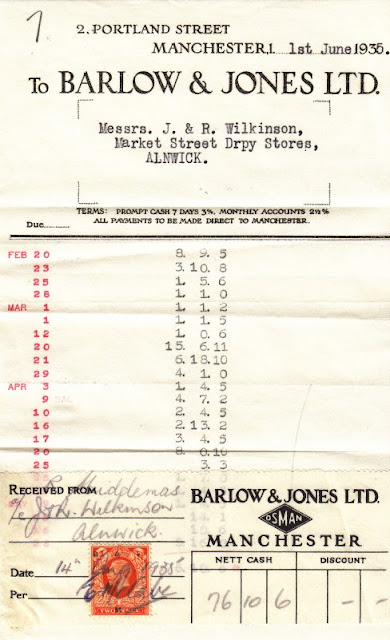 7
2, PORTLAND STREET
MANCHESTER,1. 1st June 1935.
TO BARLOW & JONES LTD.
Messrs. J. & R. Wilkinson,
Market Street Drpy Stores,
ALNWICK.
TERMS: PROMPT CASH 7 DAYS 3%, MONTHLY ACCOUNTS 2½%
ALL PAYMENTS TO BE MADE DIRECT TO MANCHESTER.
Due
FEB 20 8. 9. 5
23 3.10. 8
25 1. 5. 6
28 1. 1. 0
MAR 1 1. 1. 2
1 1. 1. 5
12 1. 0. 6
20 15. 6.11
21 6.18.10
29 4. 1. 0
APR 3 1. 4. 5
9 4. 7. 2
10 2. 4. 5
16 2.13. 2
17 3. 4. 5
20 8. 0.10
25 3. 3
RECEIVED FROM
Wilkinson
Alnwick.
Date 14th 1935
Per
BARLOW & JONES LTD.
OSMAN
MANCHESTER
NETT CASH DISCOUNT
76 10 6 - -